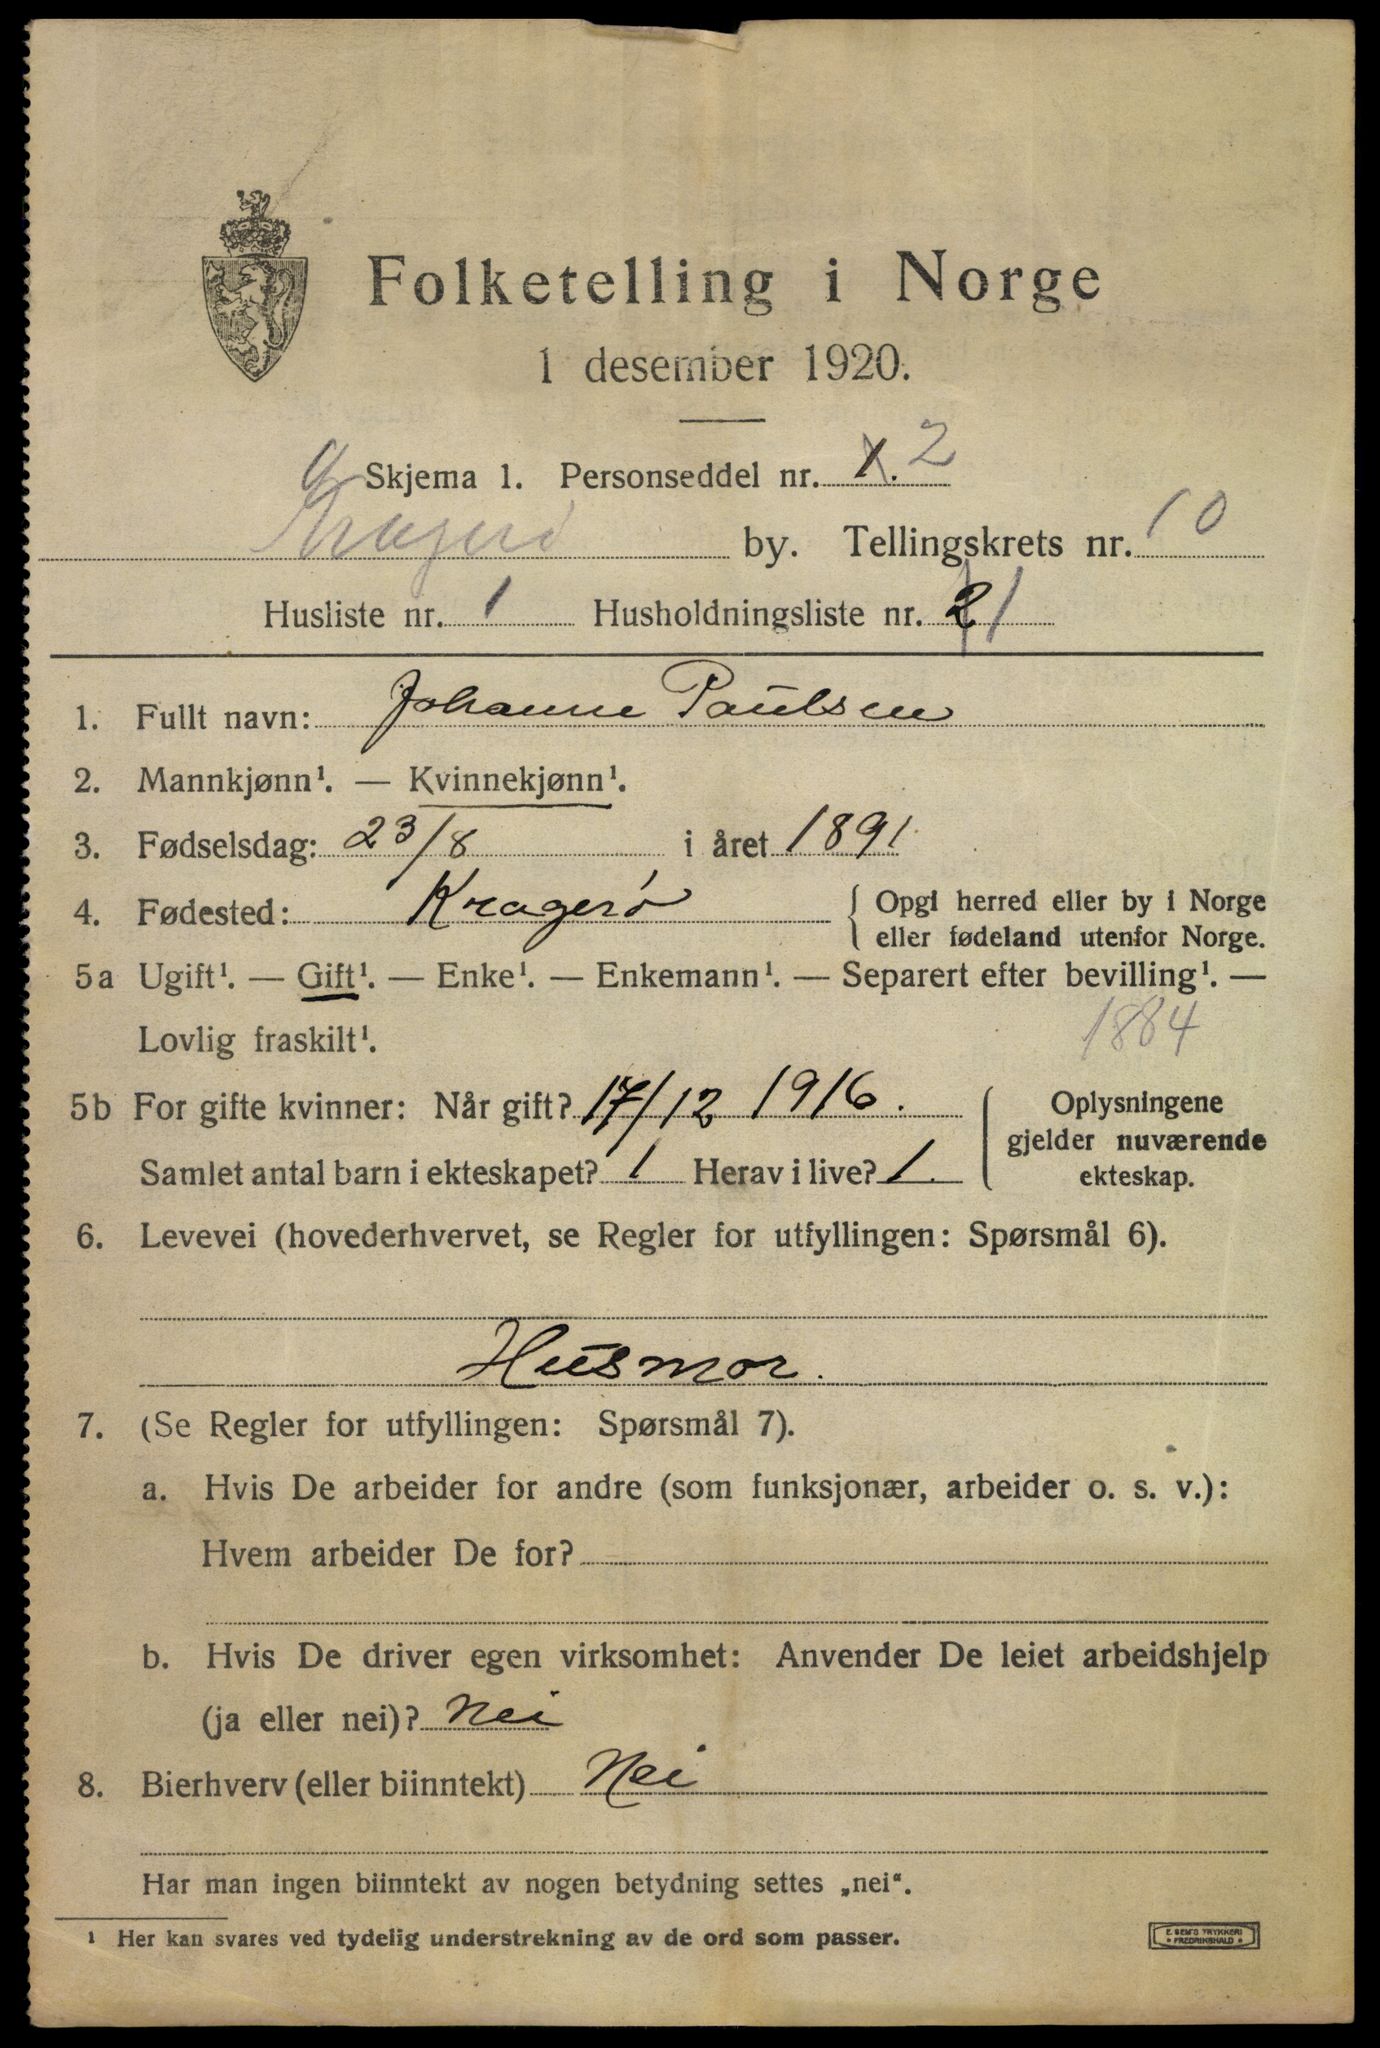 Folketelling i Norge
1 desember 1920.
Skjema 1. Personseddel nr. 1. 2
Kragerø by. Tellingskrets nr. 10
Husliste nr. 1 Husholdningsliste nr. 2 1
1. Fullt navn: Johanne Paulsen
2. Mannkjønn¹. — Kvinnekjønn¹.
3. Fødselsdag: 23/8 i året 1891
4. Fødested: Kragerö { Opgi herred eller by i Norge
eller fødeland utenfor Norge.
5a Ugift¹. — Gift¹. — Enke¹. — Enkemann¹. — Separert efter bevilling¹. —
Lovlig fraskilt¹. 1884
5b For gifte kvinner: Når gift? 17/12 1916. { Oplysningene
gjelder nuværende
Samlet antal barn i ekteskapet? 1 Herav i live? 1. ekteskap.
6. Levevei (hovederhvervet, se Regler for utfyllingen: Spørsmål 6).
Husmor.
7. (Se Regler for utfyllingen: Spørsmål 7).
a. Hvis De arbeider for andre (som funksjonær, arbeider o. s. v.):
Hvem arbeider De for?
b. Hvis De driver egen virksomhet: Anvender De leiet arbeidshjelp
(ja eller nei)? Nei
8. Bierhverv (eller biinntekt) Nei
Har man ingen biinntekt av nogen betydning settes „nei“.
¹ Her kan svares ved tydelig understrekning av de ord som passer.
E. SEM'S TRYKKERI
* FREDRIKSHALD *